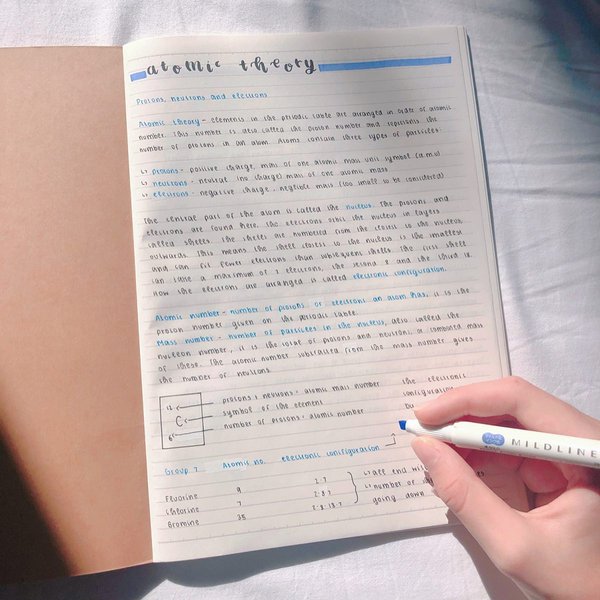 atomic theory
Protons, neutrons and electrons
Atomic theory - elements in the periodic table are arranged in order of atomic
number. This number is also called the proton number and represents the
number of protons in an atom. Atoms contain three types of particles:
↳ protons - positive charge, mass of one atomic mass unit symbol (a.m.u)
↳ neutrons - neutral (no charge) mass of one atomic mass
↳ electrons - negative charge, neglible mass (too small to be considered)
The central part of the atom is called the nucleus. The protons and
electrons are found here. The electrons orbit the nucleus in layers
called shells. The shells are numbered from the closest to the nucleus
outwards. This means the shell closest to the nucleus is the smallest
and can fit fewer electrons than subsequent shells. The first shell
can take a maximum of 2 electrons, the second 8 and the third 18.
How the electrons are arranged is called electronic configuration.
Atomic number - number of protons or electrons an atom has, it is the
proton number given on the periodic table.
Mass number - number of particles in the nucleus, also called the
nucleon number, it is the total of protons and neutrons, a combined mass
of these. The atomic number subtracted from the mass number gives
the number of neutrons.
12 protons + neutrons - atomic mass number
C symbol of the element
6 number of protons - atomic number
the electronic
configuration
Group 7 Atomic no. electronic configuration
Fluorine 9 2.7
Chlorine 7 2.8.7
Bromine 35 2.8.18.7
↳ all end
↳ number of
going down
MILDLINE